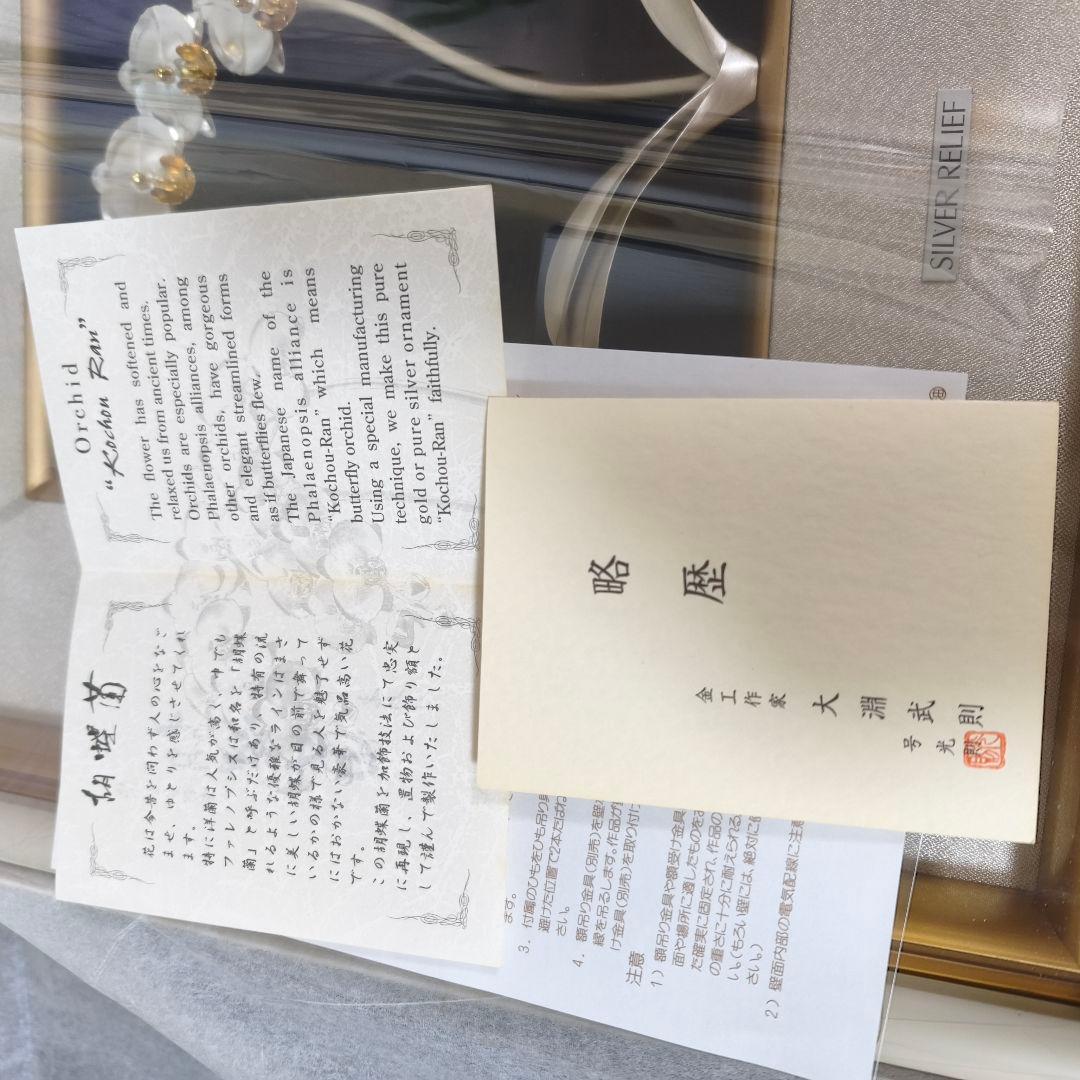 SILVER RELIEF
Orchid
“Kochou Ran”
The flower has softened and
relaxed us from ancient times.
Orchids are especially popular.
Phalaenopsis alliances, among
other orchids, have gorgeous
and elegant streamlined forms
as if butterflies flew.
The Japanese name of the
Phalaenopsis alliance is
“Kochou-Ran” which means
butterfly orchid.
Using a special manufacturing
technique, we make this pure
gold or pure silver ornament
“Kochou-Ran” faithfully.
胡蝶蘭
花は今昔を問わず人の心をなご
ませ、ゆとりを感じさせてくれ
ます。
特に洋蘭は人気が高く、中でも
ファレノプシスは和名を「胡蝶
蘭」と呼ぶだけあり、特有の流
れるような優雅なラインはまさ
に美しい胡蝶が目の前で舞って
いるかの様で見る人を魅了せず
にはおかない豪華で気品高い花
です。
この胡蝶蘭を加飾技法にて忠実
に再現し、置物および飾り額と
して謹んで製作いたしました。
略歴
金工作家
大淵武則
号光則
ます。
3. 付属のひもをひも吊り
避けた位置で2本たばね
さい。
4. 額吊り金具(別売)を壁
線を吊るします。作品が
け金具(別売)を取り付け
注意
1) 額吊り金具や額受け金具
面や場所に適したものをお
た確実に固定され、作品の
の重さに十分に耐えられる
い。(もろい壁には、絶対に
さい。)
2) 壁面内部の電気配線に注意